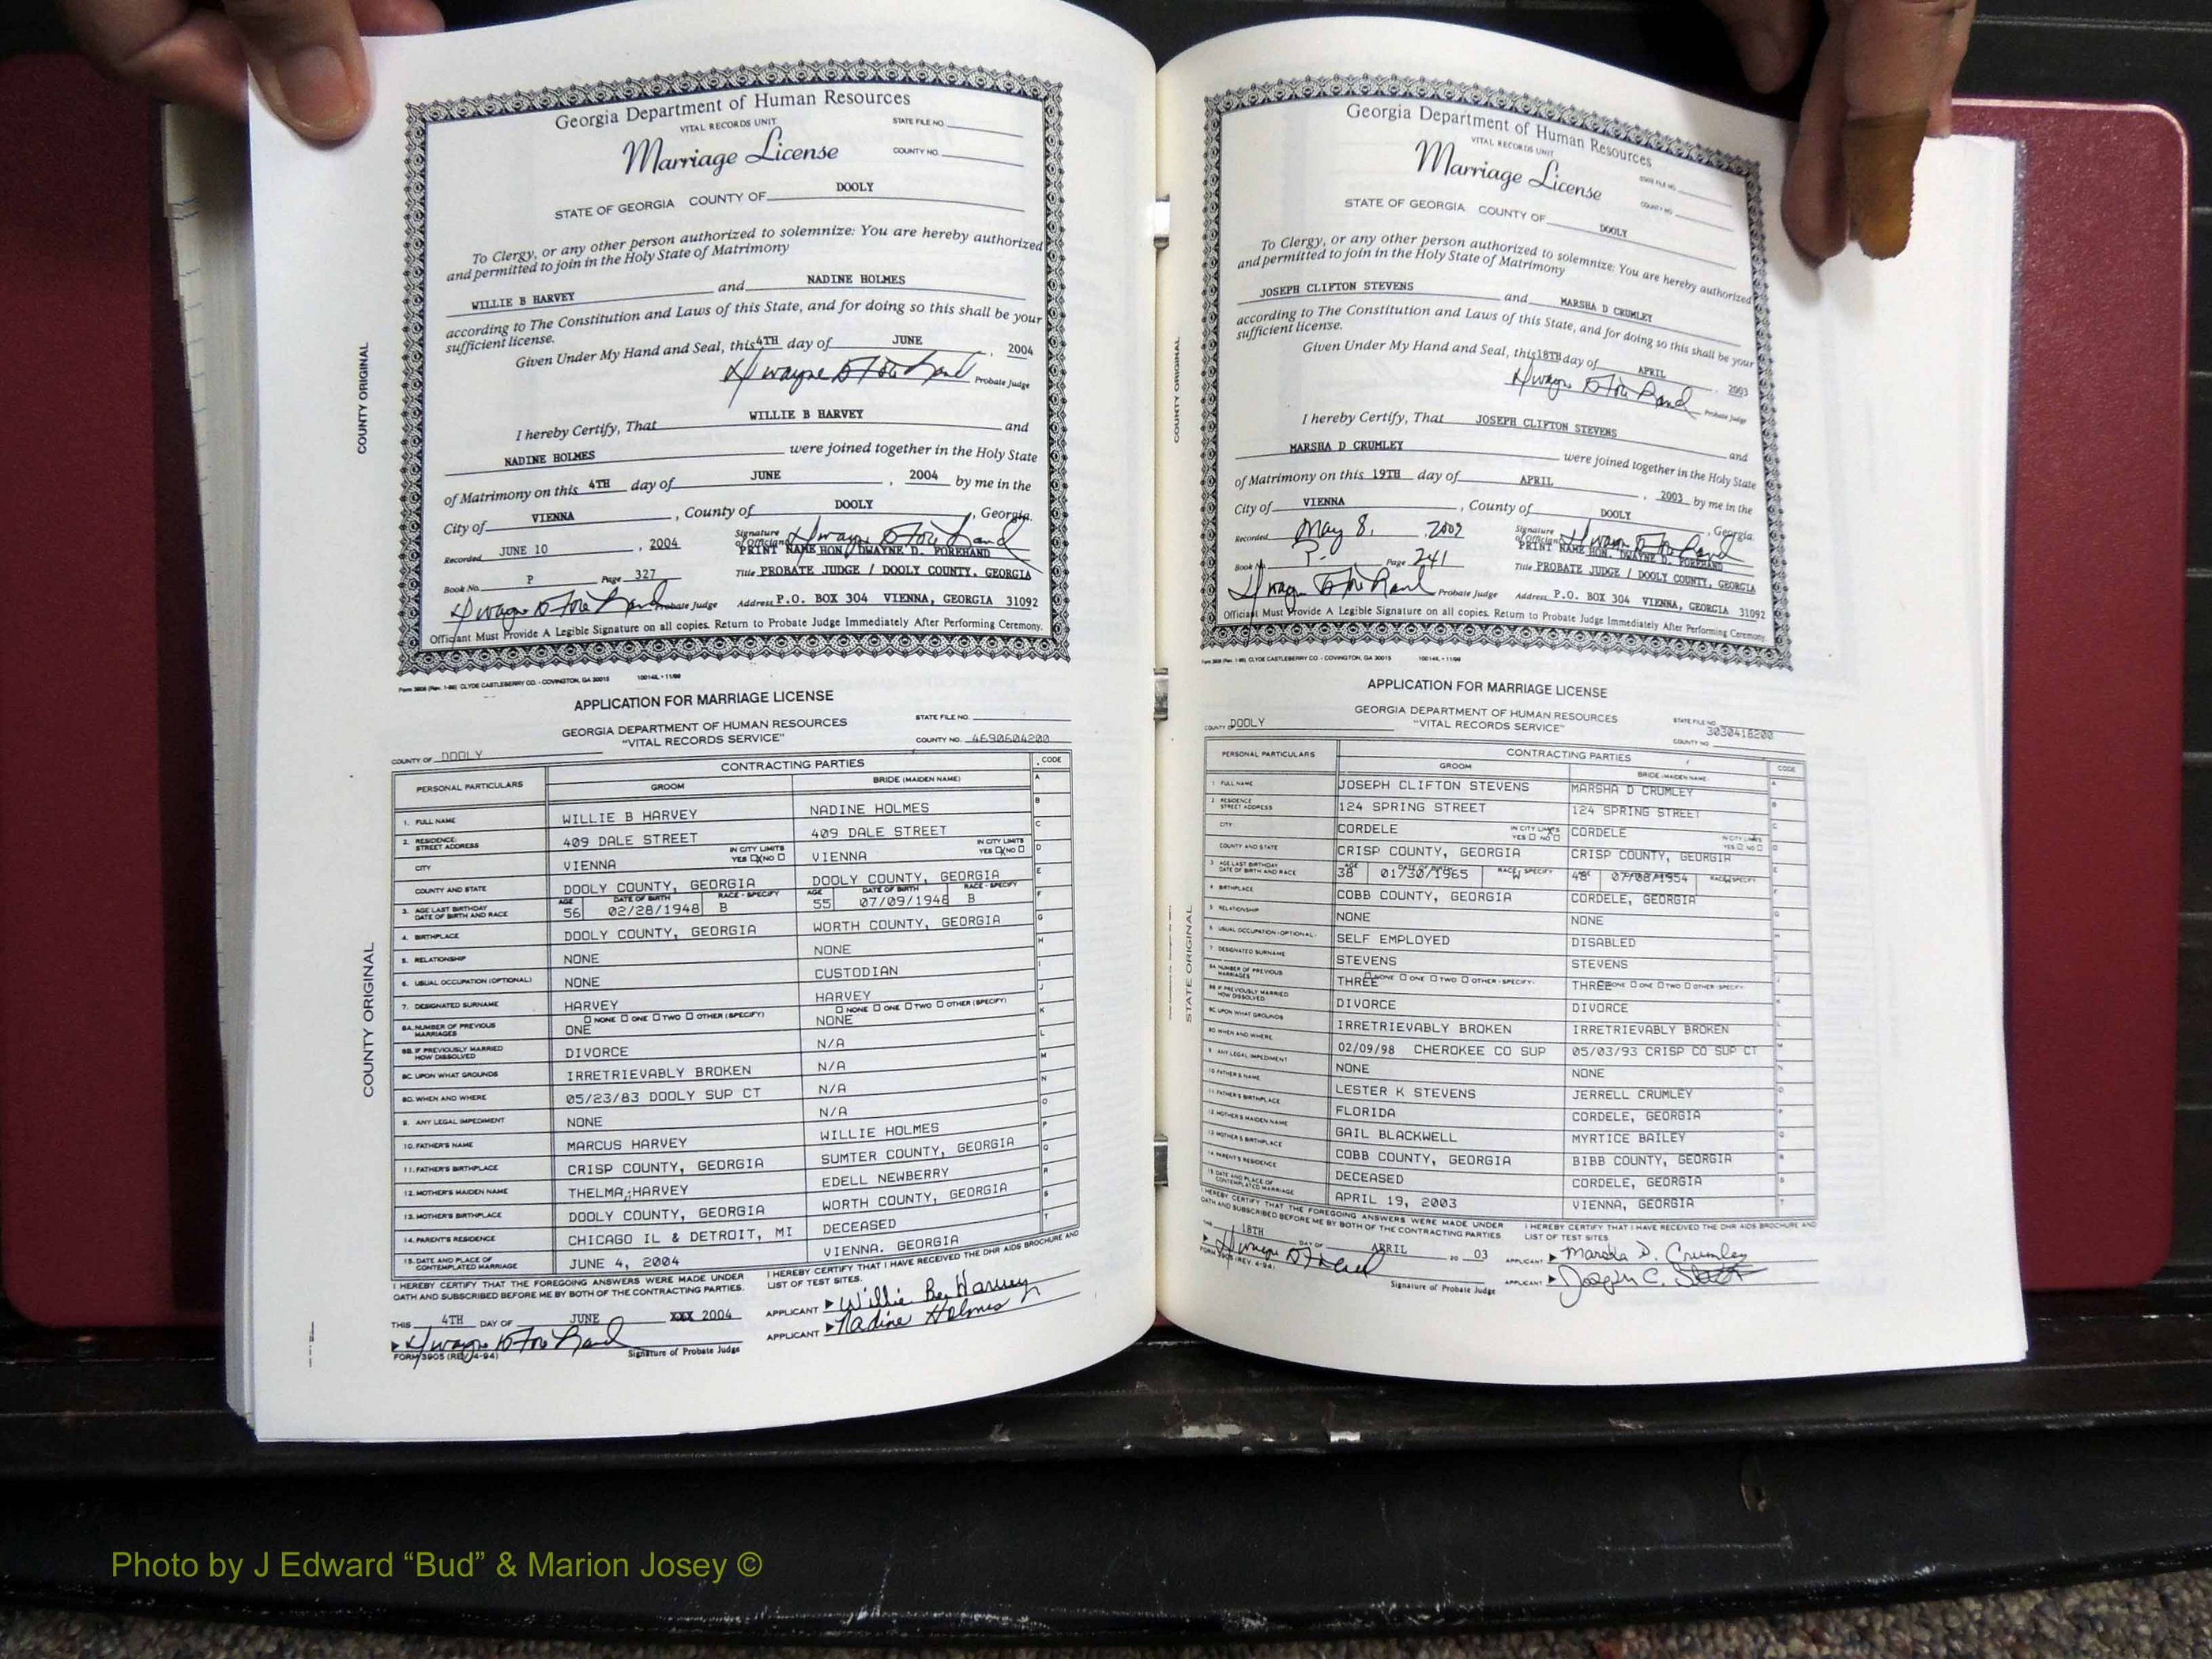 COUNTY ORIGINAL
Georgia Department of Human Resources
VITAL RECORDS UNIT
STATE FILE NO.
Marriage License
COUNTY NO.
STATE OF GEORGIA COUNTY OF DOOLY
To Clergy, or any other person authorized to solemnize: You are hereby authorized
and permitted to join in the Holy State of Matrimony
WILLIE B HARVEY and NADINE HOLMES
according to The Constitution and Laws of this State, and for doing so this shall be your
sufficient license.
Given Under My Hand and Seal, this 4TH day of JUNE, 2004
Probate Judge
I hereby Certify, That WILLIE B HARVEY and
NADINE HOLMES were joined together in the Holy State
of Matrimony on this 4TH day of JUNE, 2004 by me in the
City of VIENNA, County of DOOLY, Georgia.
Recorded JUNE 10, 2004 Signature of Officiant
PRINT NAME HON. DWAYNE D. FOREHAND
Book No. P Page 327 Title PROBATE JUDGE / DOOLY COUNTY, GEORGIA
Probate Judge Address P.O. BOX 304 VIENNA, GEORGIA 31092
Officiant Must Provide A Legible Signature on all copies. Return to Probate Judge Immediately After Performing Ceremony.
Form 3908 (Rev. 1-99) CLYDE CASTLEBERRY CO. - COVINGTON, GA 30015 10014L • 11/99
APPLICATION FOR MARRIAGE LICENSE
GEORGIA DEPARTMENT OF HUMAN RESOURCES
"VITAL RECORDS SERVICE"
STATE FILE NO.
COUNTY NO. 4690604200
COUNTY OF DOOLY
COUNTY ORIGINAL
PERSONAL PARTICULARS CONTRACTING PARTIES CODE
GROOM BRIDE (MAIDEN NAME)
1. FULL NAME WILLIE B HARVEY NADINE HOLMES
2. RESIDENCE: STREET ADDRESS 409 DALE STREET 409 DALE STREET
CITY VIENNA IN CITY LIMITS YES NO VIENNA IN CITY LIMITS YES NO
COUNTY AND STATE DOOLY COUNTY, GEORGIA DOOLY COUNTY, GEORGIA
3. AGE LAST BIRTHDAY DATE OF BIRTH AND RACE AGE 56 DATE OF BIRTH 02/28/1948 RACE - SPECIFY B AGE 55 DATE OF BIRTH 07/09/1948 RACE - SPECIFY B
4. BIRTHPLACE DOOLY COUNTY, GEORGIA WORTH COUNTY, GEORGIA
5. RELATIONSHIP NONE NONE
6. USUAL OCCUPATION (OPTIONAL) NONE CUSTODIAN
7. DESIGNATED SURNAME HARVEY HARVEY
8A. NUMBER OF PREVIOUS MARRIAGES NONE ONE TWO OTHER (SPECIFY) ONE NONE ONE TWO OTHER (SPECIFY) NONE
8B. IF PREVIOUSLY MARRIED HOW DISSOLVED DIVORCE N/A
8C. UPON WHAT GROUNDS IRRETRIEVABLY BROKEN N/A
8D. WHEN AND WHERE 05/23/83 DOOLY SUP CT N/A
9. ANY LEGAL IMPEDIMENT NONE N/A
10. FATHER'S NAME MARCUS HARVEY WILLIE HOLMES
11. FATHER'S BIRTHPLACE CRISP COUNTY, GEORGIA SUMTER COUNTY, GEORGIA
12. MOTHER'S MAIDEN NAME THELMA HARVEY EDELL NEWBERRY
13. MOTHER'S BIRTHPLACE DOOLY COUNTY, GEORGIA WORTH COUNTY, GEORGIA
14. PARENT'S RESIDENCE CHICAGO IL & DETROIT, MI DECEASED
15. DATE AND PLACE OF CONTEMPLATED MARRIAGE JUNE 4, 2004 VIENNA, GEORGIA
I HEREBY CERTIFY THAT THE FOREGOING ANSWERS WERE MADE UNDER
OATH AND SUBSCRIBED BEFORE ME BY BOTH OF THE CONTRACTING PARTIES.
I HEREBY CERTIFY THAT I HAVE RECEIVED THE DHR AIDS BROCHURE AND
LIST OF TEST SITES.
THIS 4TH DAY OF JUNE 2004
APPLICANT Willie Be Harvey
APPLICANT Nadine Holmes
FORM 3905 (REV. 4-94) Signature of Probate Judge
COUNTY ORIGINAL
Georgia Department of Human Resources
VITAL RECORDS UNIT
STATE FILE NO.
Marriage License
COUNTY NO.
STATE OF GEORGIA COUNTY OF DOOLY
To Clergy, or any other person authorized to solemnize: You are hereby authorized
and permitted to join in the Holy State of Matrimony
JOSEPH CLIFTON STEVENS and MARSHA D CRUMLEY
according to The Constitution and Laws of this State, and for doing so this shall be your
sufficient license.
Given Under My Hand and Seal, this 18TH day of APRIL, 2003
Probate Judge
I hereby Certify, That JOSEPH CLIFTON STEVENS and
MARSHA D CRUMLEY were joined together in the Holy State
of Matrimony on this 19TH day of APRIL, 2003 by me in the
City of VIENNA, County of DOOLY, Georgia.
Recorded May 8, Signature of Officiant
PRINT NAME HON. DWAYNE D. FOREHAND
Book No. P Page 241 Title PROBATE JUDGE / DOOLY COUNTY, GEORGIA
Probate Judge Address P.O. BOX 304 VIENNA, GEORGIA 31092
Officiant Must Provide A Legible Signature on all copies. Return to Probate Judge Immediately After Performing Ceremony.
Form 3908 (Rev. 1-99) CLYDE CASTLEBERRY CO. - COVINGTON, GA 30015 10014L • 11/99
APPLICATION FOR MARRIAGE LICENSE
GEORGIA DEPARTMENT OF HUMAN RESOURCES
"VITAL RECORDS SERVICE"
STATE FILE NO.
3030418200
COUNTY NO.
COUNTY OF DOOLY
STATE ORIGINAL
PERSONAL PARTICULARS CONTRACTING PARTIES CODE
GROOM BRIDE (MAIDEN NAME)
1. FULL NAME JOSEPH CLIFTON STEVENS MARSHA D CRUMLEY
2. RESIDENCE STREET ADDRESS 124 SPRING STREET 124 SPRING STREET
CITY CORDELE IN CITY LIMITS YES NO CORDELE IN CITY LIMITS YES NO
COUNTY AND STATE CRISP COUNTY, GEORGIA CRISP COUNTY, GEORGIA
3. AGE LAST BIRTHDAY DATE OF BIRTH AND RACE 38 01/30/1965 W 48 07/08/1954 W
4. BIRTHPLACE COBB COUNTY, GEORGIA CORDELE, GEORGIA
5. RELATIONSHIP NONE NONE
6. USUAL OCCUPATION (OPTIONAL) SELF EMPLOYED DISABLED
7. DESIGNATED SURNAME STEVENS STEVENS
8A. NUMBER OF PREVIOUS MARRIAGES THREE NONE ONE TWO OTHER (SPECIFY) THREE NONE ONE TWO OTHER (SPECIFY)
8B. IF PREVIOUSLY MARRIED HOW DISSOLVED DIVORCE DIVORCE
8C. UPON WHAT GROUNDS IRRETRIEVABLY BROKEN IRRETRIEVABLY BROKEN
8D. WHEN AND WHERE 02/09/98 CHEROKEE CO SUP 05/03/93 CRISP CO SUP CT
9. ANY LEGAL IMPEDIMENT NONE NONE
10. FATHER'S NAME LESTER K STEVENS JERRELL CRUMLEY
11. FATHER'S BIRTHPLACE FLORIDA CORDELE, GEORGIA
12. MOTHER'S MAIDEN NAME GAIL BLACKWELL MYRTICE BAILEY
13. MOTHER'S BIRTHPLACE COBB COUNTY, GEORGIA BIBB COUNTY, GEORGIA
14. PARENT'S RESIDENCE DECEASED CORDELE, GEORGIA
15. DATE AND PLACE OF CONTEMPLATED MARRIAGE APRIL 19, 2003 VIENNA, GEORGIA
I HEREBY CERTIFY THAT THE FOREGOING ANSWERS WERE MADE UNDER
OATH AND SUBSCRIBED BEFORE ME BY BOTH OF THE CONTRACTING PARTIES
I HEREBY CERTIFY THAT I HAVE RECEIVED THE DHR AIDS BROCHURE AND
LIST OF TEST SITES
THIS 18TH DAY OF APRIL 20 03
APPLICANT Marsha D. Crumley
APPLICANT Joseph C.
FORM 3905 (REV. 4-94) Signature of Probate Judge
Photo by J Edward “Bud” & Marion Josey ©